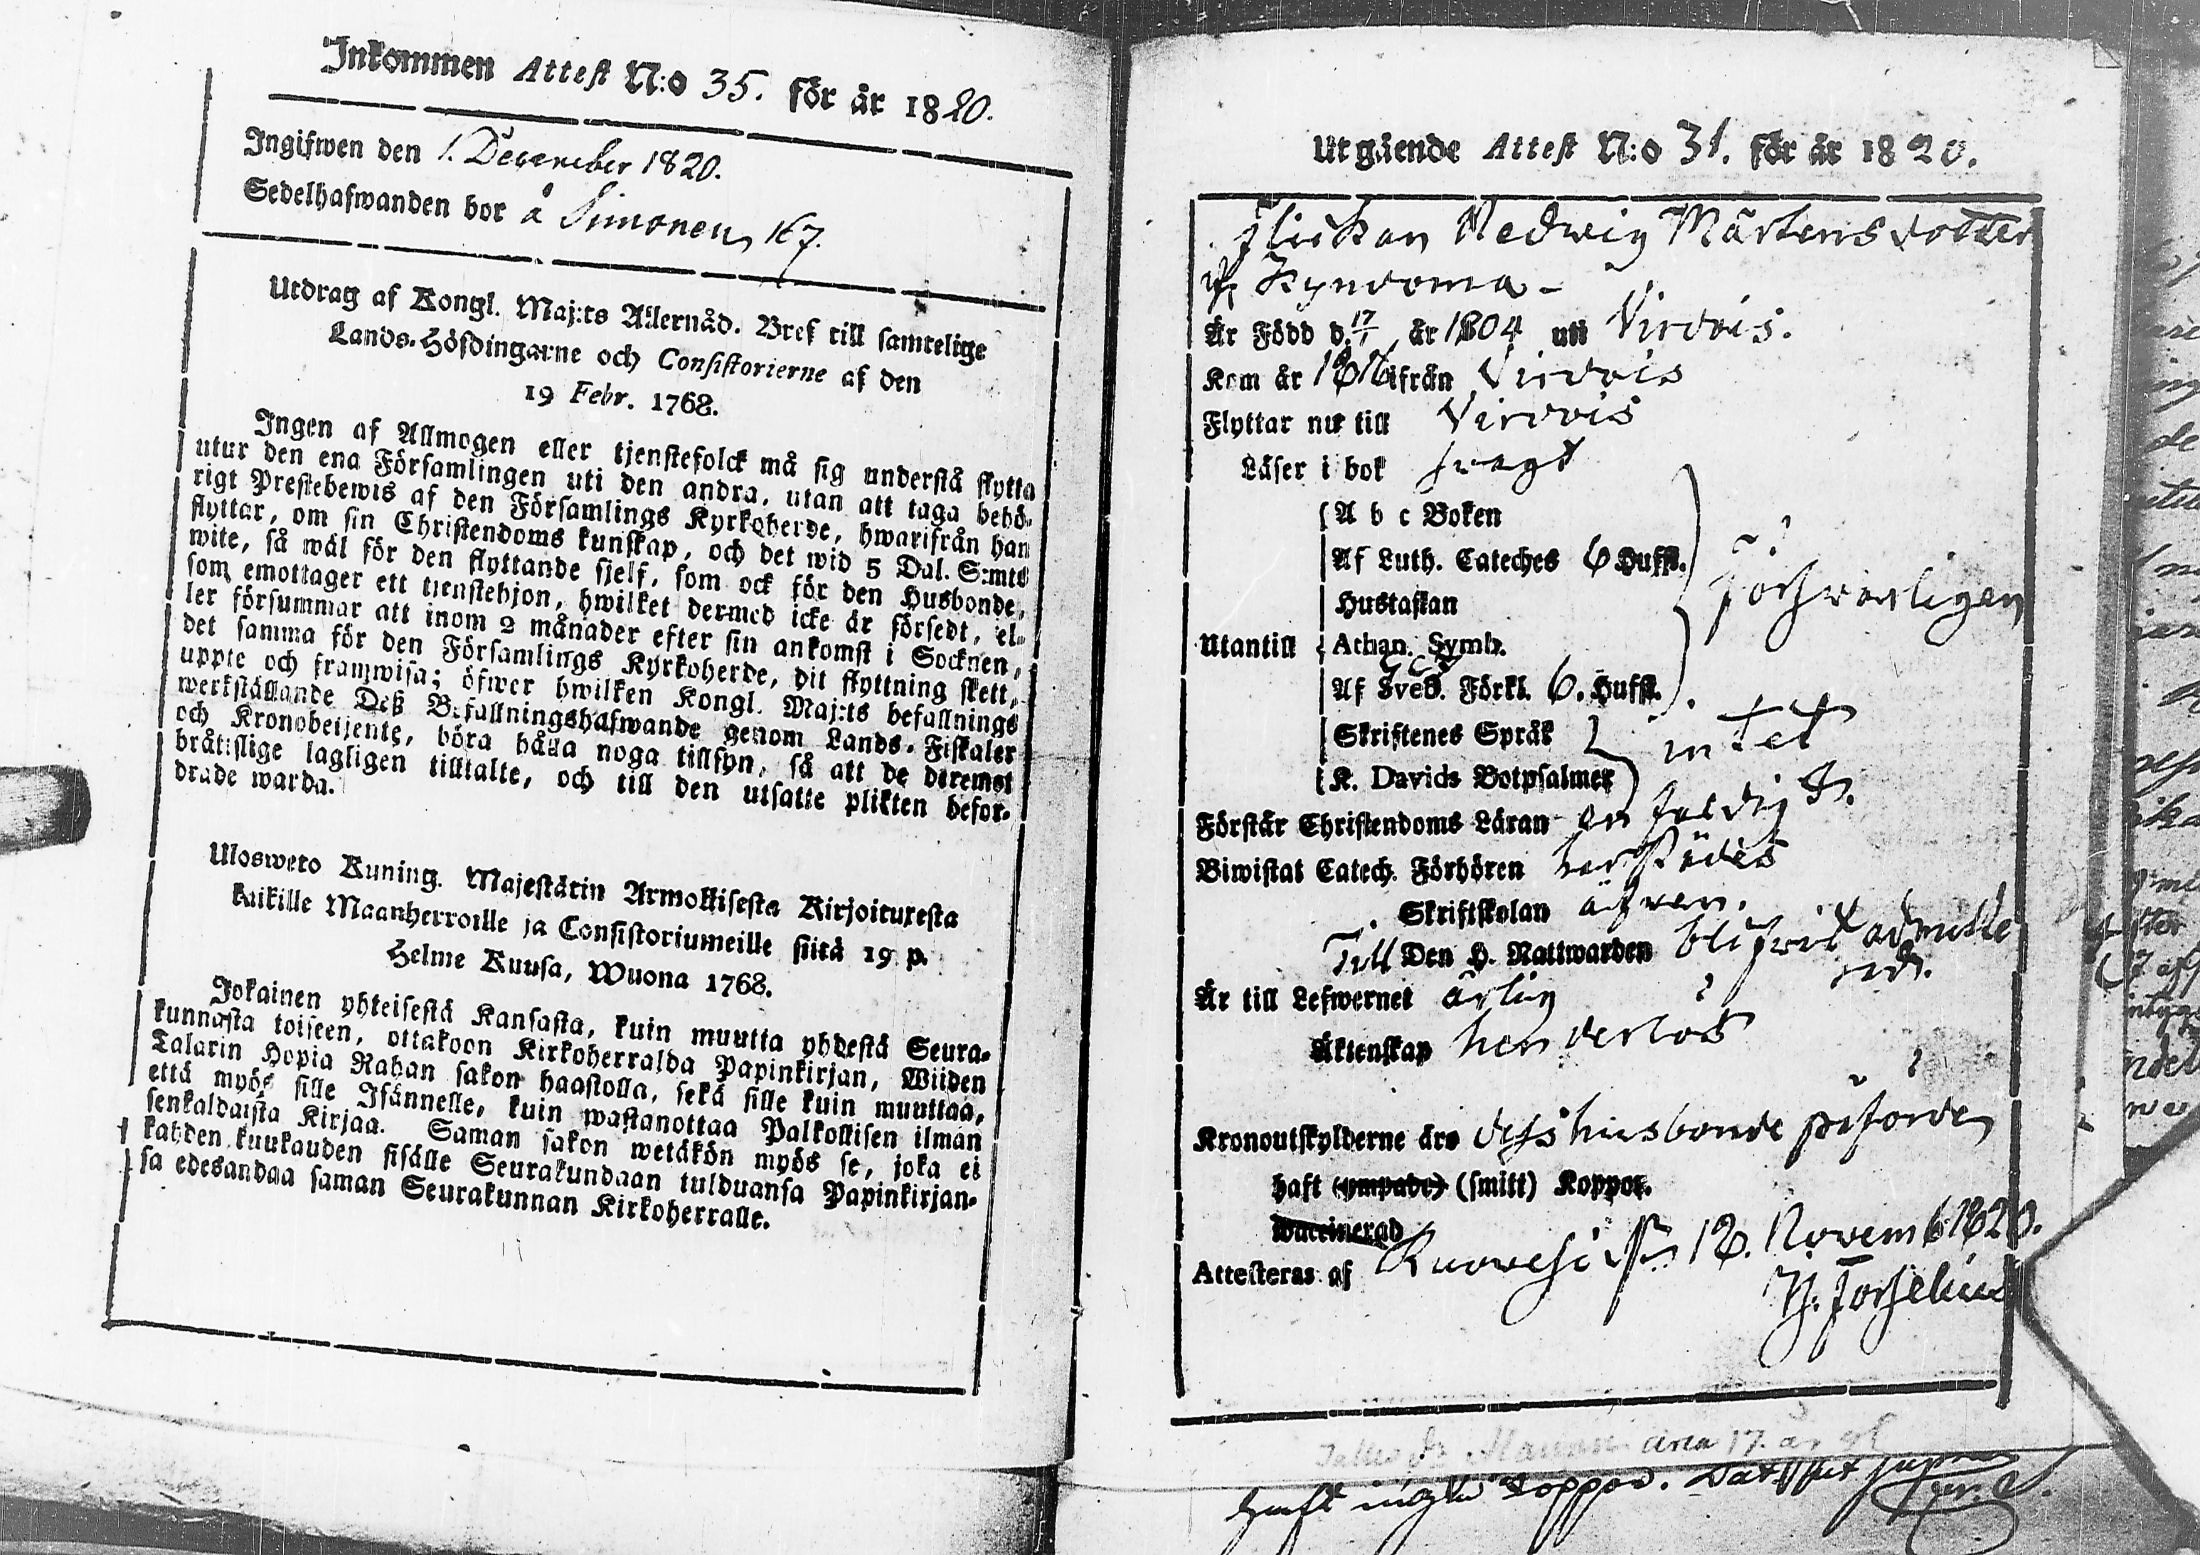 Inkommen Attest N:o 35. för år 1820.
Ingifwen den 1. December 1820.
Sedelhafwanden bor å Simonen, 167.
Utdrag af Kongl. Maj:ts Allernåd. Bref till samtelige
Lands-Höfdingarne och Consistorierne af den
19 Febr. 1768.
Ingen af Allmogen eller tjenstefolck må sig understå flytta
utur den ena Församlingen uti den andra, utan att taga behö-
rigt Prestebewis af den Församlings Kyrkoherde, hwarifrån han
flyttar, om sin Christendoms kunskap, och det wid 5 Dal. S:mts
wite, så wäl för den flyttande sjelf, som ock för den Husbonde,
som emottager ett tjenstehjon, hwilket dermed icke är försedt, el-
ler försummar att inom 2 månader efter sin ankomst i Socknen,
det samma för den Församlings Kyrkoherde, dit flyttning skett,
uppte och framwisa; öfwer hwilken Kongl. Maj:ts befallnings
werkställande Deß Befallningshafwande genom Lands-Fiskaler
och Kronobetjente, böra hålla noga tillsyn, så att de deremot
bråtslige lagligen tilltalte, och till den utsatte plikten befor-
drade warda.
Ulosweto Kuning. Majestätin Armollisesta Kirjoituxesta
kaikille Maanherroille ja Consistoriumeille siitä 19 p.
Helme Kuusa, Wuona 1768.
Jokainen yhteisestä Kansasta, kuin muutta yhdestä Seura-
kunnasta toiseen, ottakoon Kirkoherralda Papinkirjan, Wiiden
Talarin Hopia Rahan sakon haastolla, sekä sille kuin muuttaa,
että myös sille Isännelle, kuin wastanottaa Palkollisen ilman
senkaldaista Kirjaa. Saman sakon wetäkön myös se, joka ei
kahden kuukauden sisälle Seurakundaan tulduansa Papinkirjan-
sa edesandaa saman Seurakunnan Kirkoherralle.
Utgående Attest N:o 31. för år 1820.
Flickan Hedwig Mårtensdotter
fr. Kyndoma -
Är Född d. 17/1 år 1804 uti Virdois.
Kom år 1816 ifrån Virdois
Flyttar nu till Virdois
Läser i bok swagt
A b c Boken
Af Luth. Cateches 6 Hufst.
Hustaflan
Utantill Athan. Symb.
Af Sveb. Förkl. 6. Hufst.
förswarligen
Skriftenes Språk
intet
K. Davids Botpsalmer
Förstår Christendoms Läran enfaldigt.
Biwistat Catech. Förhören
Skriftskolan äfwen.
Till Den H. Nattwarden blifwit admitte
rad.
Är till Lefwernet ärlig
Äktenskap hinderlös
Kronoutskylderne äro dess husbonde påförde
haft (ympade) (smitt) Koppor.
Waccinerad
Attesteras af Ruovesi 18. Novemb 1820.
H. Forselius
17. år
haft inga Koppor.